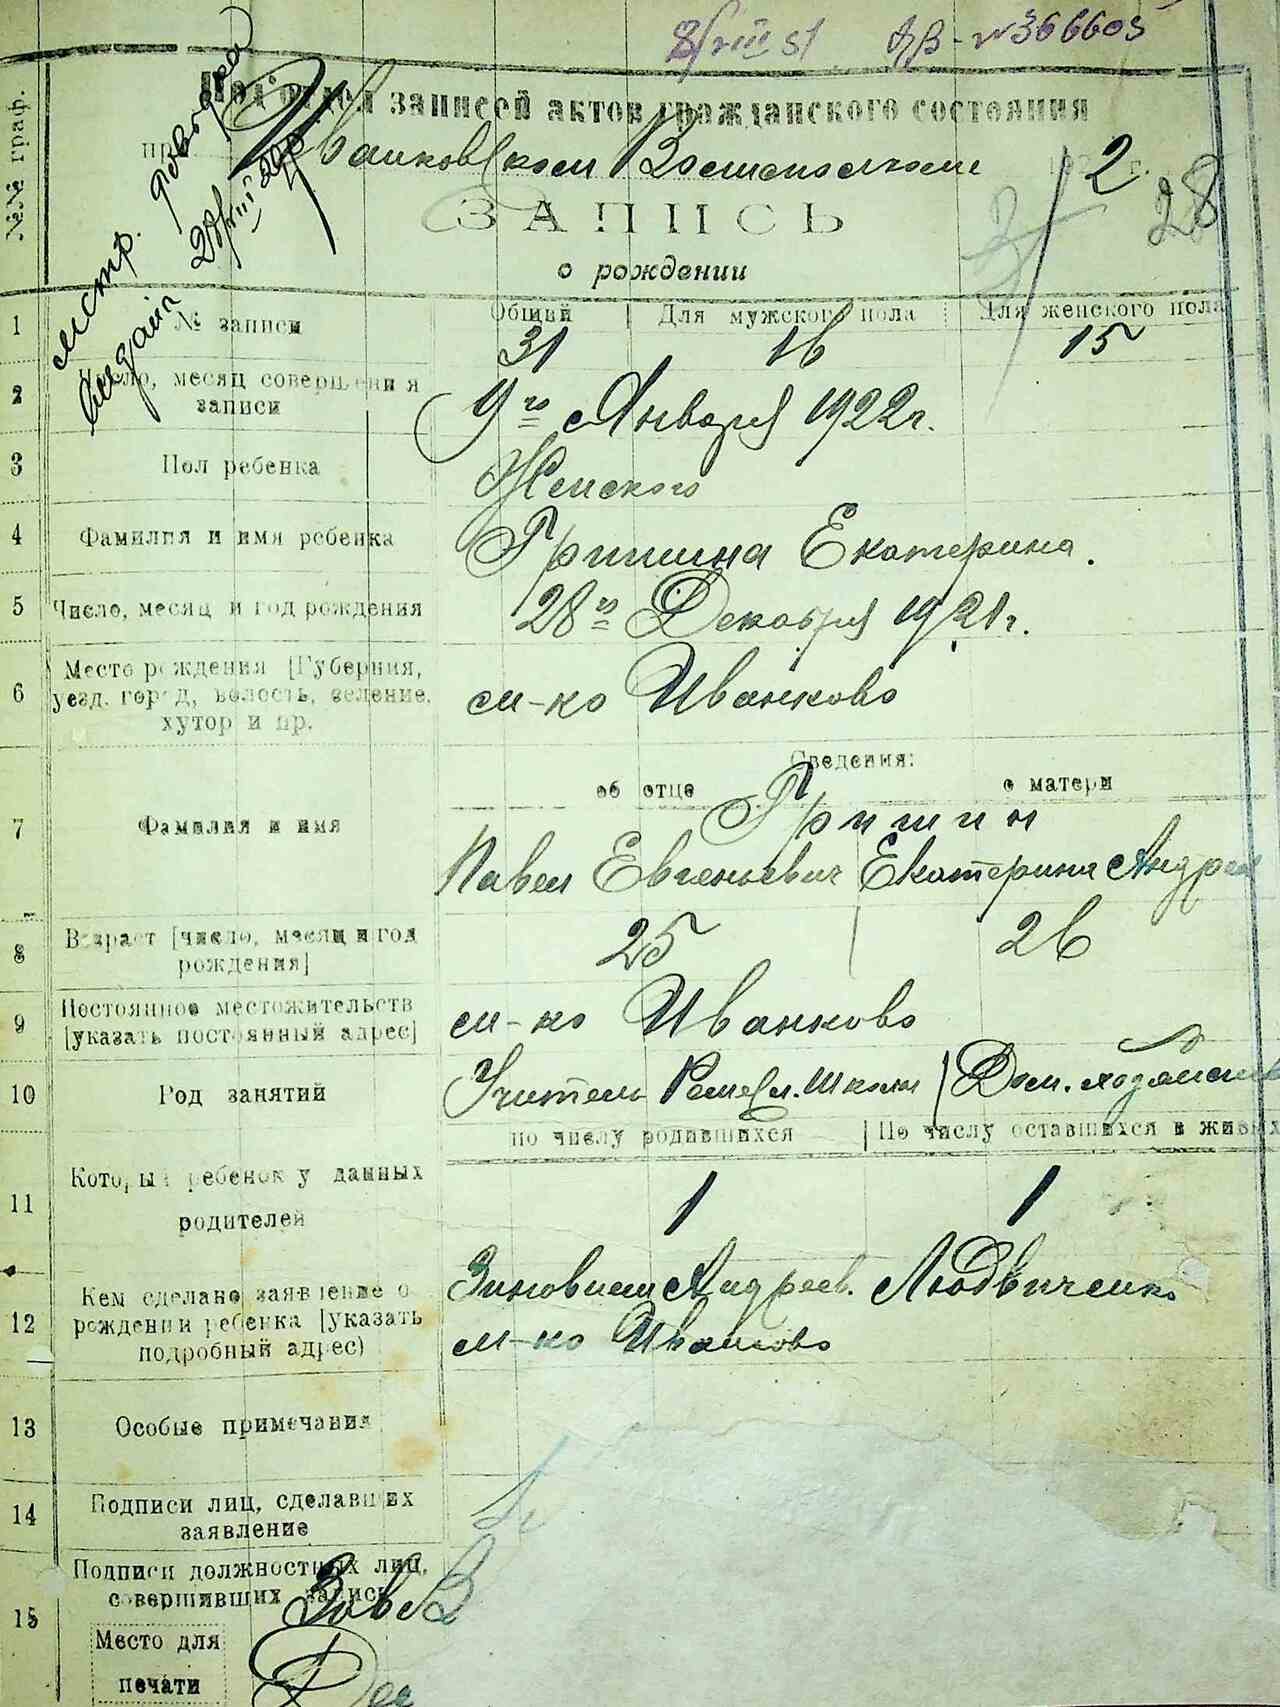 8/VIII 51 ДВ-№366605
отдел записей актов гражданского состояния
при Иванковском Волисполкоме 192 2 г.
28
ЗАПИСЬ
о рождении
№№ граф.
Общий Для мужского пола Для женского пола
1 № записи 31 16 15
2 Число, месяц совершения записи 9го Января 1922г.
3 Пол ребенка Женского
4 Фамилия и имя ребенка Гришина Екатерина.
5 Число, месяц и год рождения 28го Декабря 1921г.
6 Место рождения [Губерния, уезд, город, волость, селение, хутор и пр. м-ко Иванково
Сведения:
об отце о матери
Гришин
7 Фамилия и имя Павел Евгеньевич Екатерина Андреев
8 Возраст [число, месяц и год рождения] 25 26
9 Постоянное местожительств [указать постоянный адрес] м-ко Иванково
10 Род занятий Учитель Ремесл. Школы Дом. хозяйств
по числу родившихся По числу оставшихся в живых
11 Который ребенок у данных родителей 1 1
12 Кем сделано заявление о рождении ребенка [указать подробный адрес) Зиновием Андреев. Людвиченко
м-ко Иванково
13 Особые примечания
14 Подписи лиц, сделавших заявление
15 Подписи должностных лиц, совершивших запись
Место для
печати